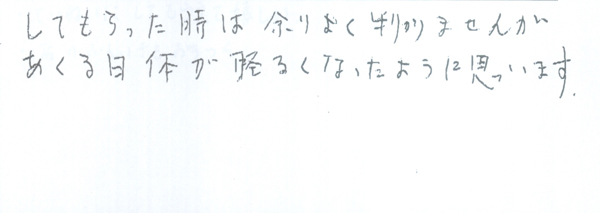 してもらった時は余りよく判りませんが
あくる日体が軽るくなったように思っいます.